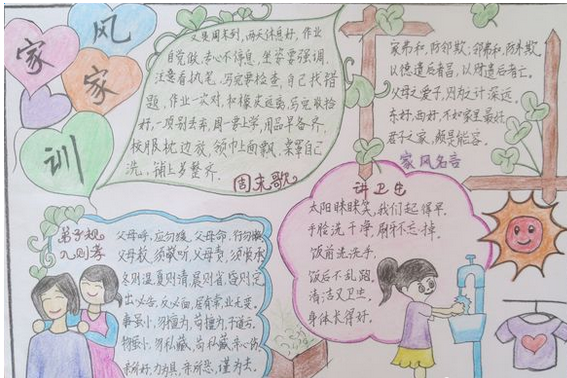 家风
家
训
又是周末到，两天休息好，作业
自觉做，专心不得急，坐姿要强调，
注意看执笔，写完要检查，自己找错
题，作业一次对，和橡皮远离，写完收拾
好，一项别丢弃，周一要上学，用品早备齐，
校服枕边放，领巾上面飘，亲辈自己
洗，铺上多整齐。
周末歌
家弗和，防邻欺，邻弗和，防外欺。
以德遗后者昌，以财遗后者亡。
父母之爱子，则为之计深远。
东好，西好，不如家里最好。
君子之家，颇是能容。
家风名言
弟子规
入则孝
父母呼，应勿缓，父母命，行勿懒
父母教，须敬听，父母责，须顺承
冬则温，夏则凊，晨则省，昏则定
出必告，反必面，居有常，业无变。
事虽小，勿擅为，苟擅为，子道亏。
物虽小，勿私藏，苟私藏，亲心伤。
亲所好，力为具，亲所恶，谨为去。
讲卫生
太阳眯眯笑，我们起得早。
手脸洗干净，刷牙不忘掉。
饭前洗洗手，
饭后不乱跑。
清洁又卫生，
身体长得好。